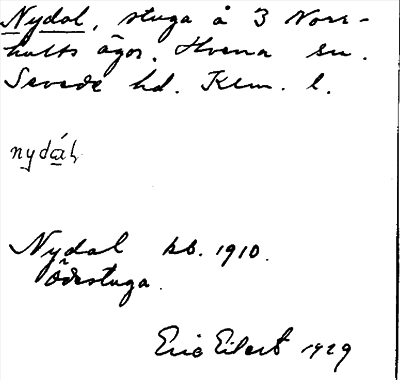 Nydal, stuga å 3 Norr-
hults ägor. Hvena sn.
Sevede hd. Klm. l.
nydá̱l
Nydal kb. 1910.
Ödestuga.
Eric Eilert 1929